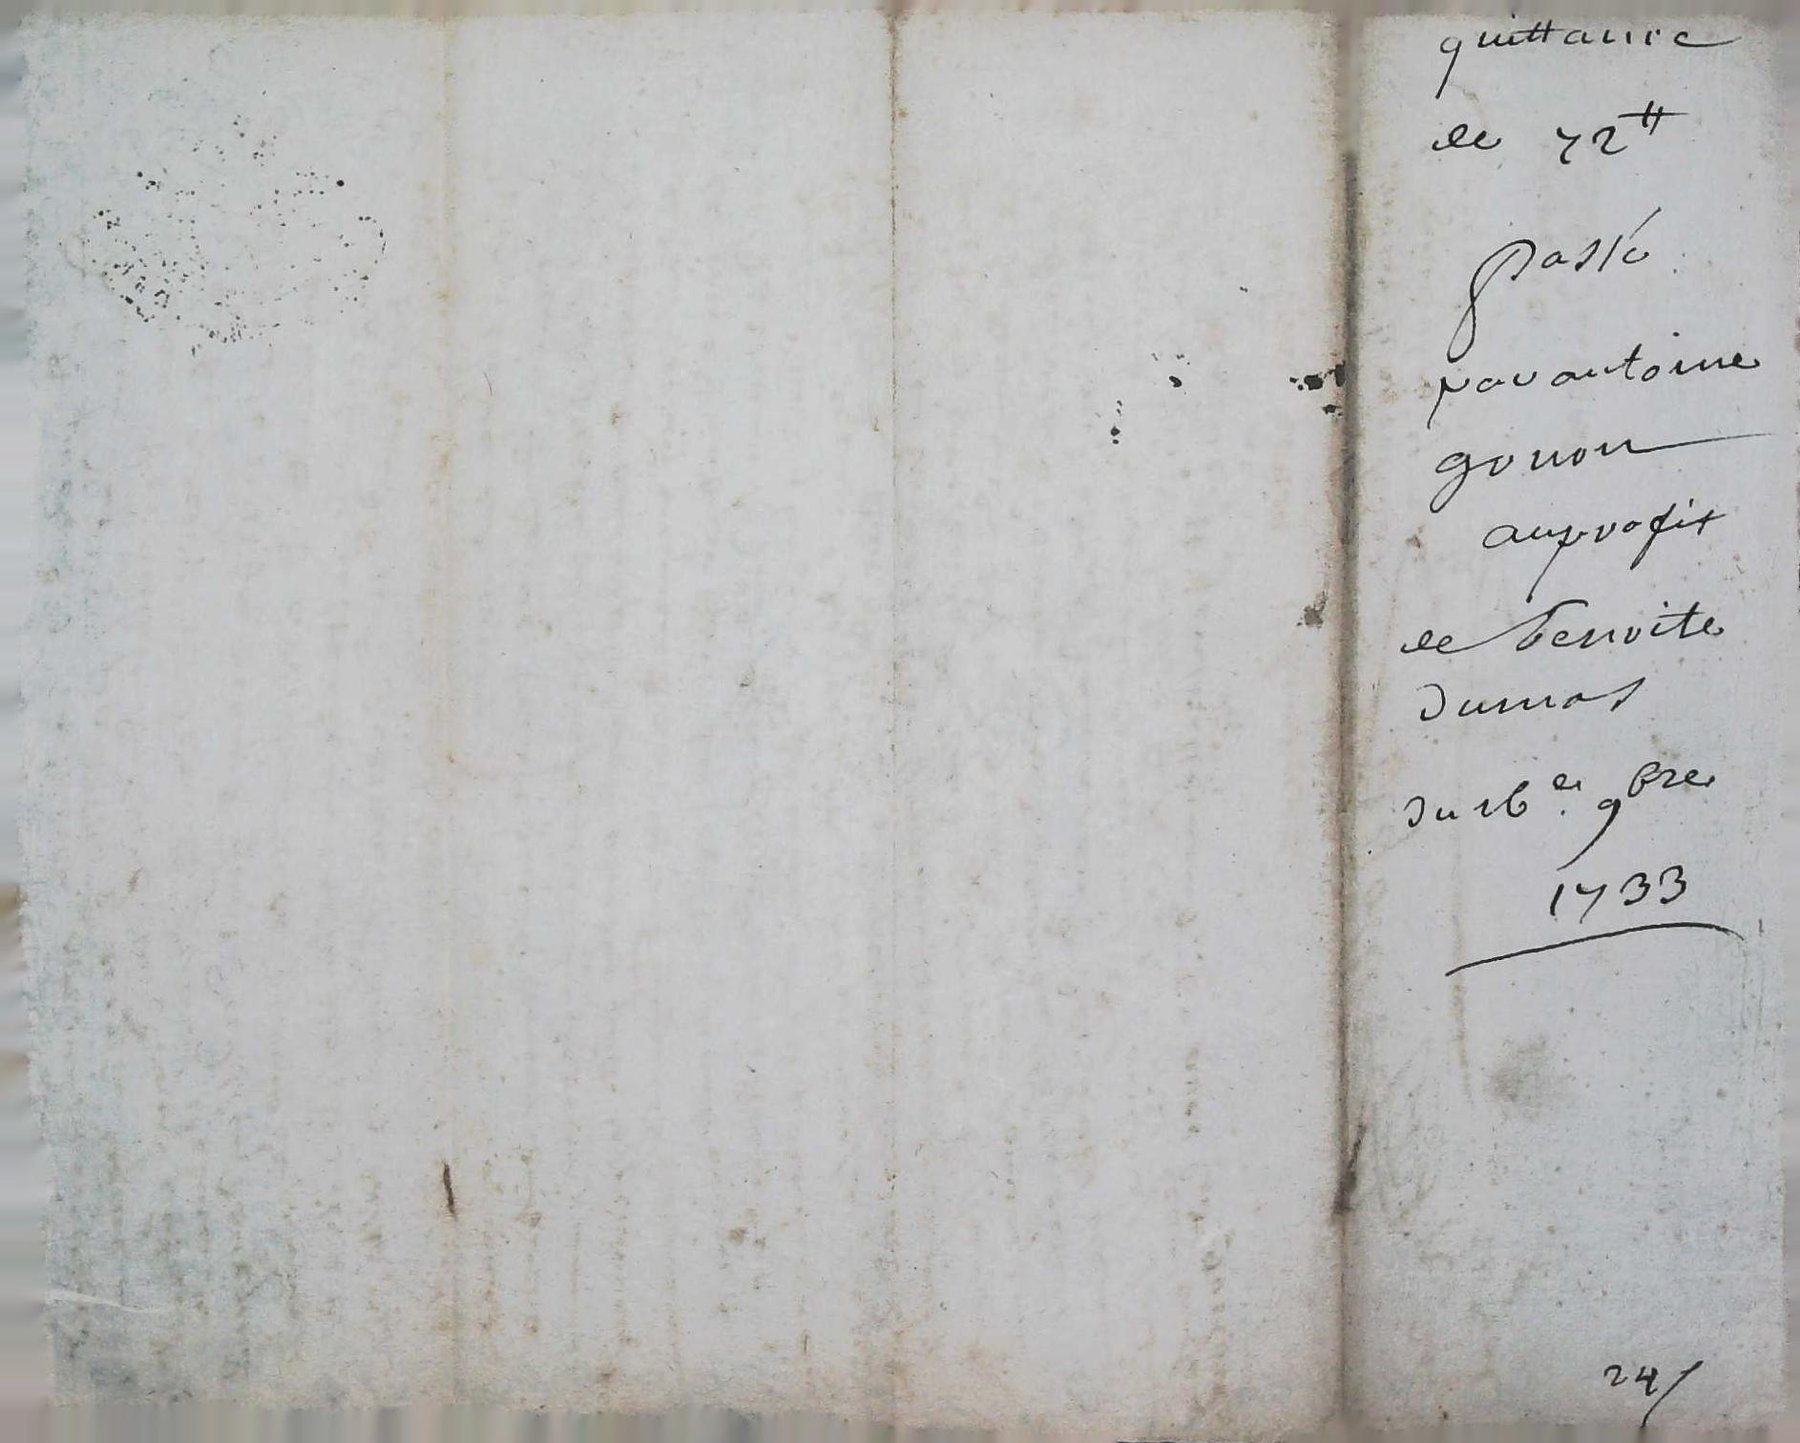 quittance
de 72 ₶
passé
par antoine
gonon
au profit
de benoite
dumas
du 16e. 9bre
1733
24 s